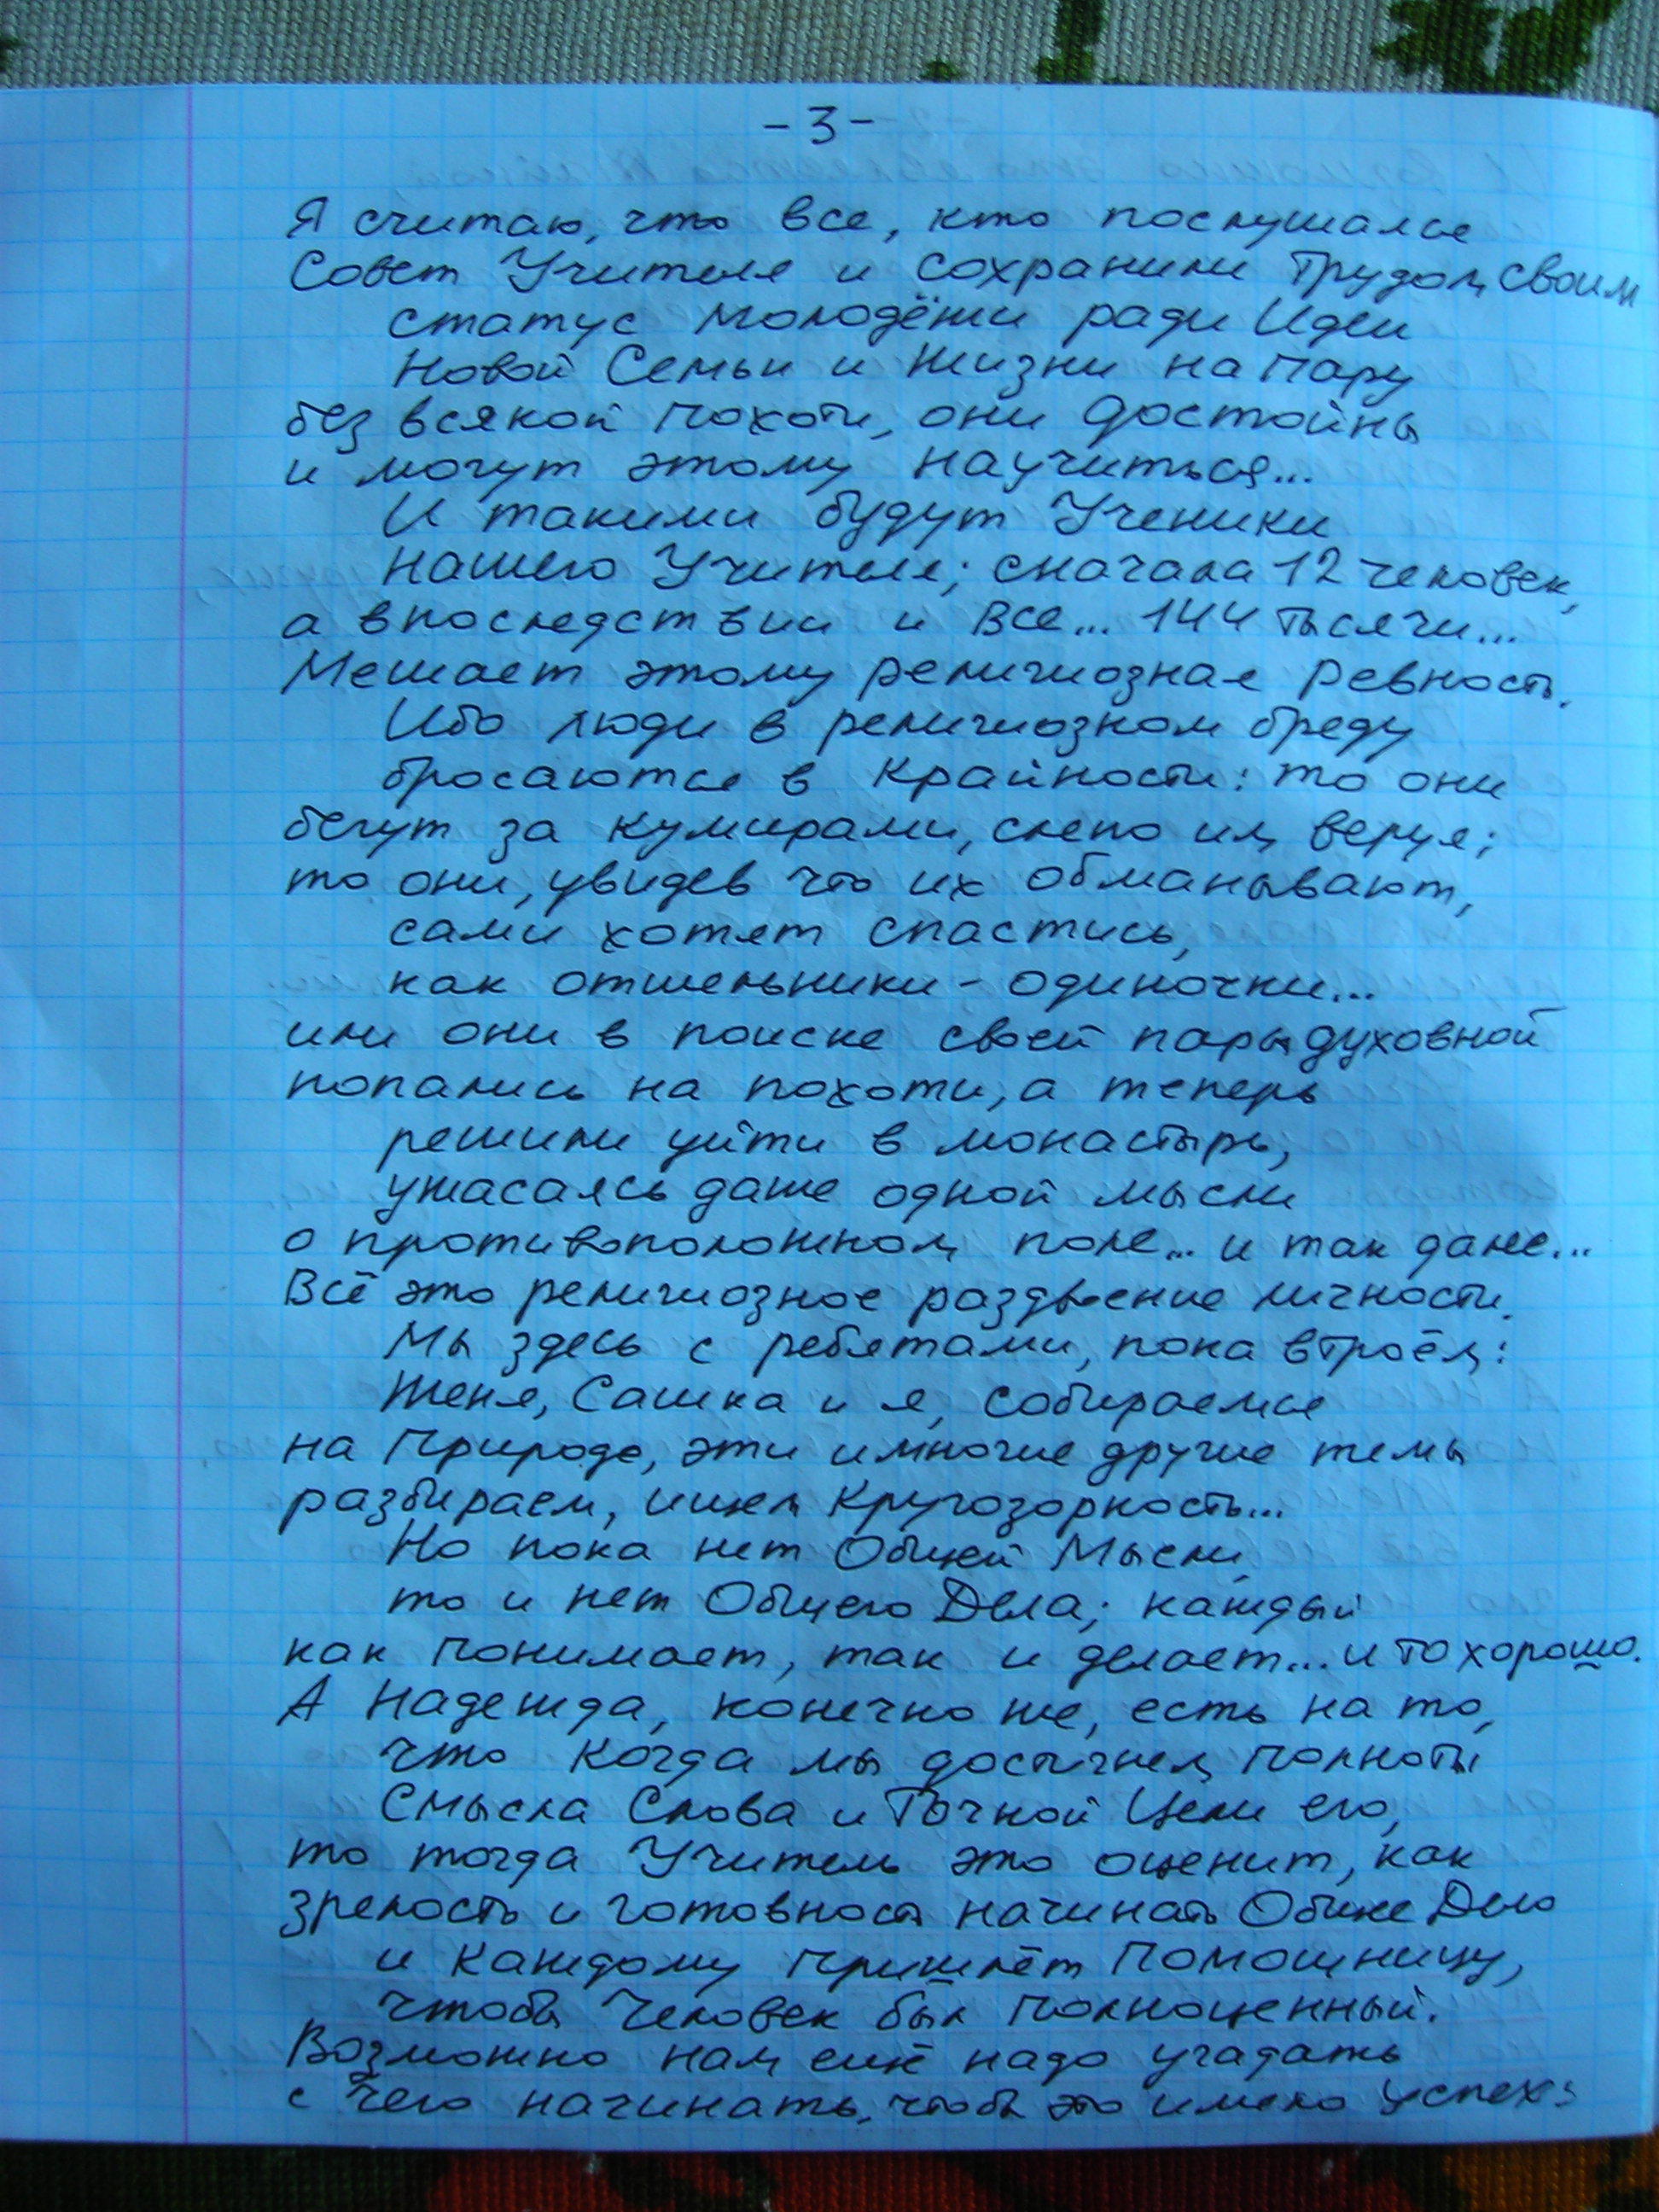 -3-
Я считаю, что все, кто послушался
Совет Учителя и сохранили Трудом своим
статус молодёжи ради Идеи
Новой Семьи и Жизни на пару
без всякой похоти, они достойны
и могут этому научиться...
И такими будут Ученики
нашего Учителя; сначала 12 человек,
а впоследствии и все... 144 тысячи...
Мешает этому религиозная Ревность.
Ибо люди в религиозном бреду
бросаются в Крайности: то они
бегут за кумирами, слепо им веруя;
то они, увидев что их обманывают,
сами хотят спастись,
как отшельники - одиночки...
или они в поиске своей пары духовной
попались на похоти, а теперь
решили уйти в монастырь,
ужасаясь даже одной мысли
о противоположном поле... и так далее...
Всё это религиозное раздвоение личности.
Мы здесь с ребятами, пока втроём:
Женя, Сашка и я, собираемся
на Природе, эти и многие другие темы
разбираем, ищем Кругозорность...
Но пока нет Общей Мысли,
то и нет Общего Дела; каждый
как понимает, так и делает... и то хорошо.
А Надежда, конечно же, есть на то,
что когда мы достигнем полноты
Смысла Слова и Точной Цели его,
то тогда Учитель это оценит, как
зрелость и готовность начинать Общее Дело
и каждому пришлёт Помощницу,
чтобы Человек был полноценный.
Возможно нам ещё надо угадать
с чего начинать, чтобы это имело успех: